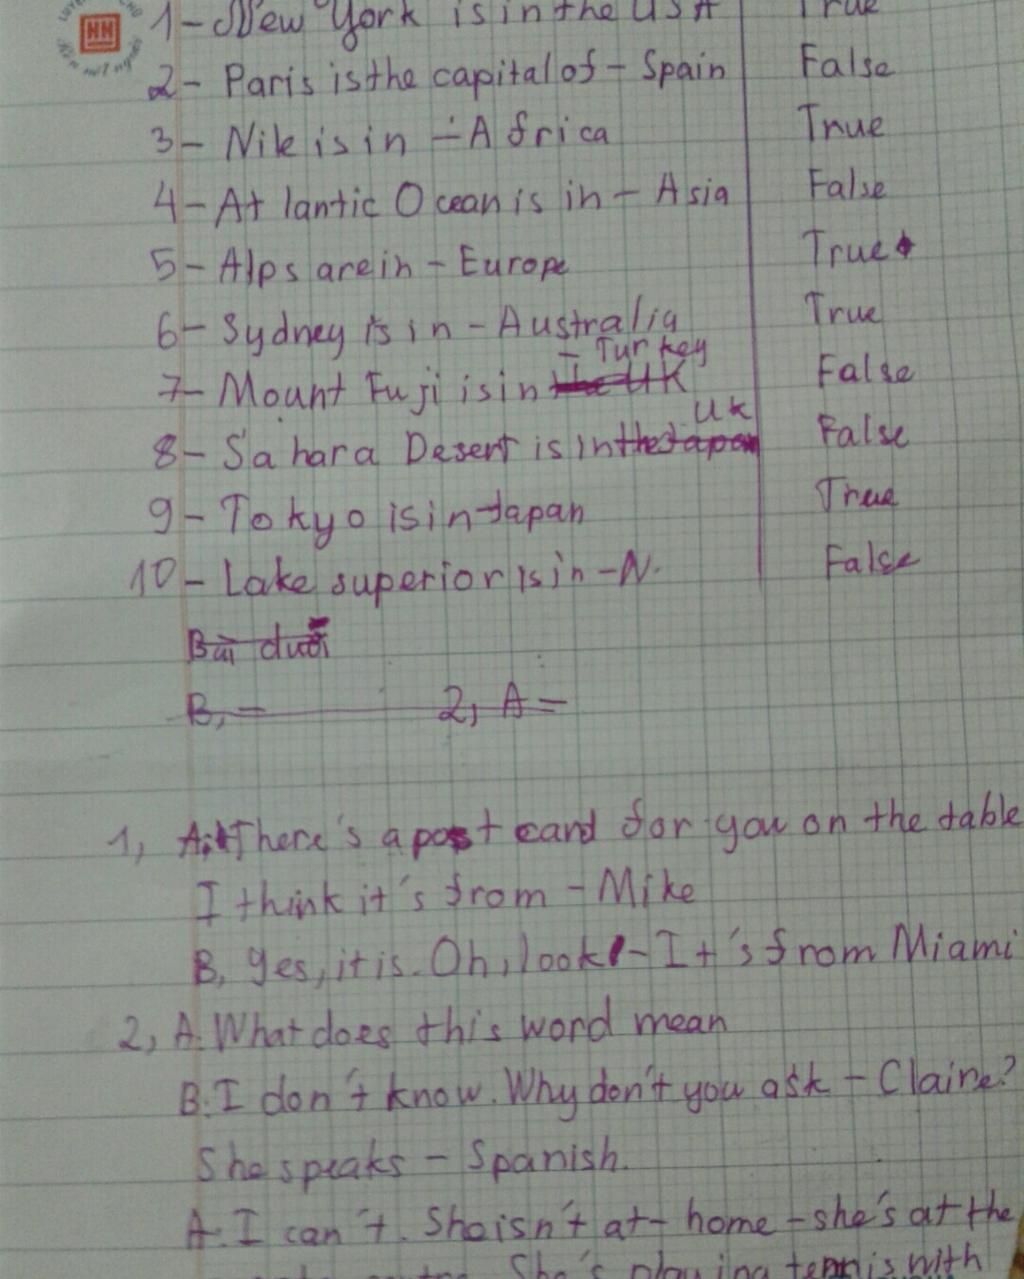 1- New York is in the USA True
2- Paris is the capital of - Spain False
3- Nile is in - Africa True
4- Atlantic Ocean is in - Asia False
5- Alps are in - Europe True
6- Sydney is in - Australia True
- Turkey
7- Mount Fuji is in the UK False
UK
8- Sahara Desert is in the Japan False
9- Tokyo is in - Japan True
10- Lake superior is in - N. False
Bài dưới
B, - 2, A =
1, A: There's a post card for you on the table
I think it's from - Mike
B, Yes, it is. Oh, look! - It's from Miami
2, A. What does this word mean
B. I don't know. Why don't you ask - Claire?
She speaks - Spanish.
A. I can't. She isn't at - home - she's at the
She's playing tennis with